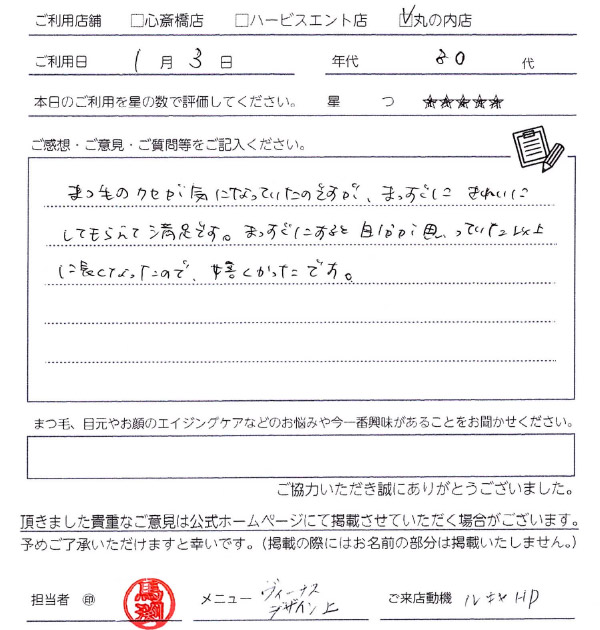 ご利用店舗 □心斎橋店 □ハービスエント店 ☑丸の内店
ご利用日 1 月 3 日 年代 30 代
本日のご利用を星の数で評価してください。 星 つ ★★★★★
ご感想・ご意見・ご質問等をご記入ください。
まつ毛のクセが気になっていたのですが、まっすぐに きれいに
してもらえて満足です。まっすぐにすると自分が思っていた以上
に長くなったので、嬉しかったです。
まつ毛、目元やお顔のエイジングケアなどのお悩みや今一番興味があることをお聞かせください。
ご協力いただき誠にありがとうございました。
頂きました貴重なご意見は公式ホームページにて掲載させていただく場合がございます。
予めご了承いただけますと幸いです。(掲載の際にはお名前の部分は掲載いたしません。)
担当者 ㊞ 馬渕 メニュー ヴィーナス
デザイン上 ご来店動機 HP